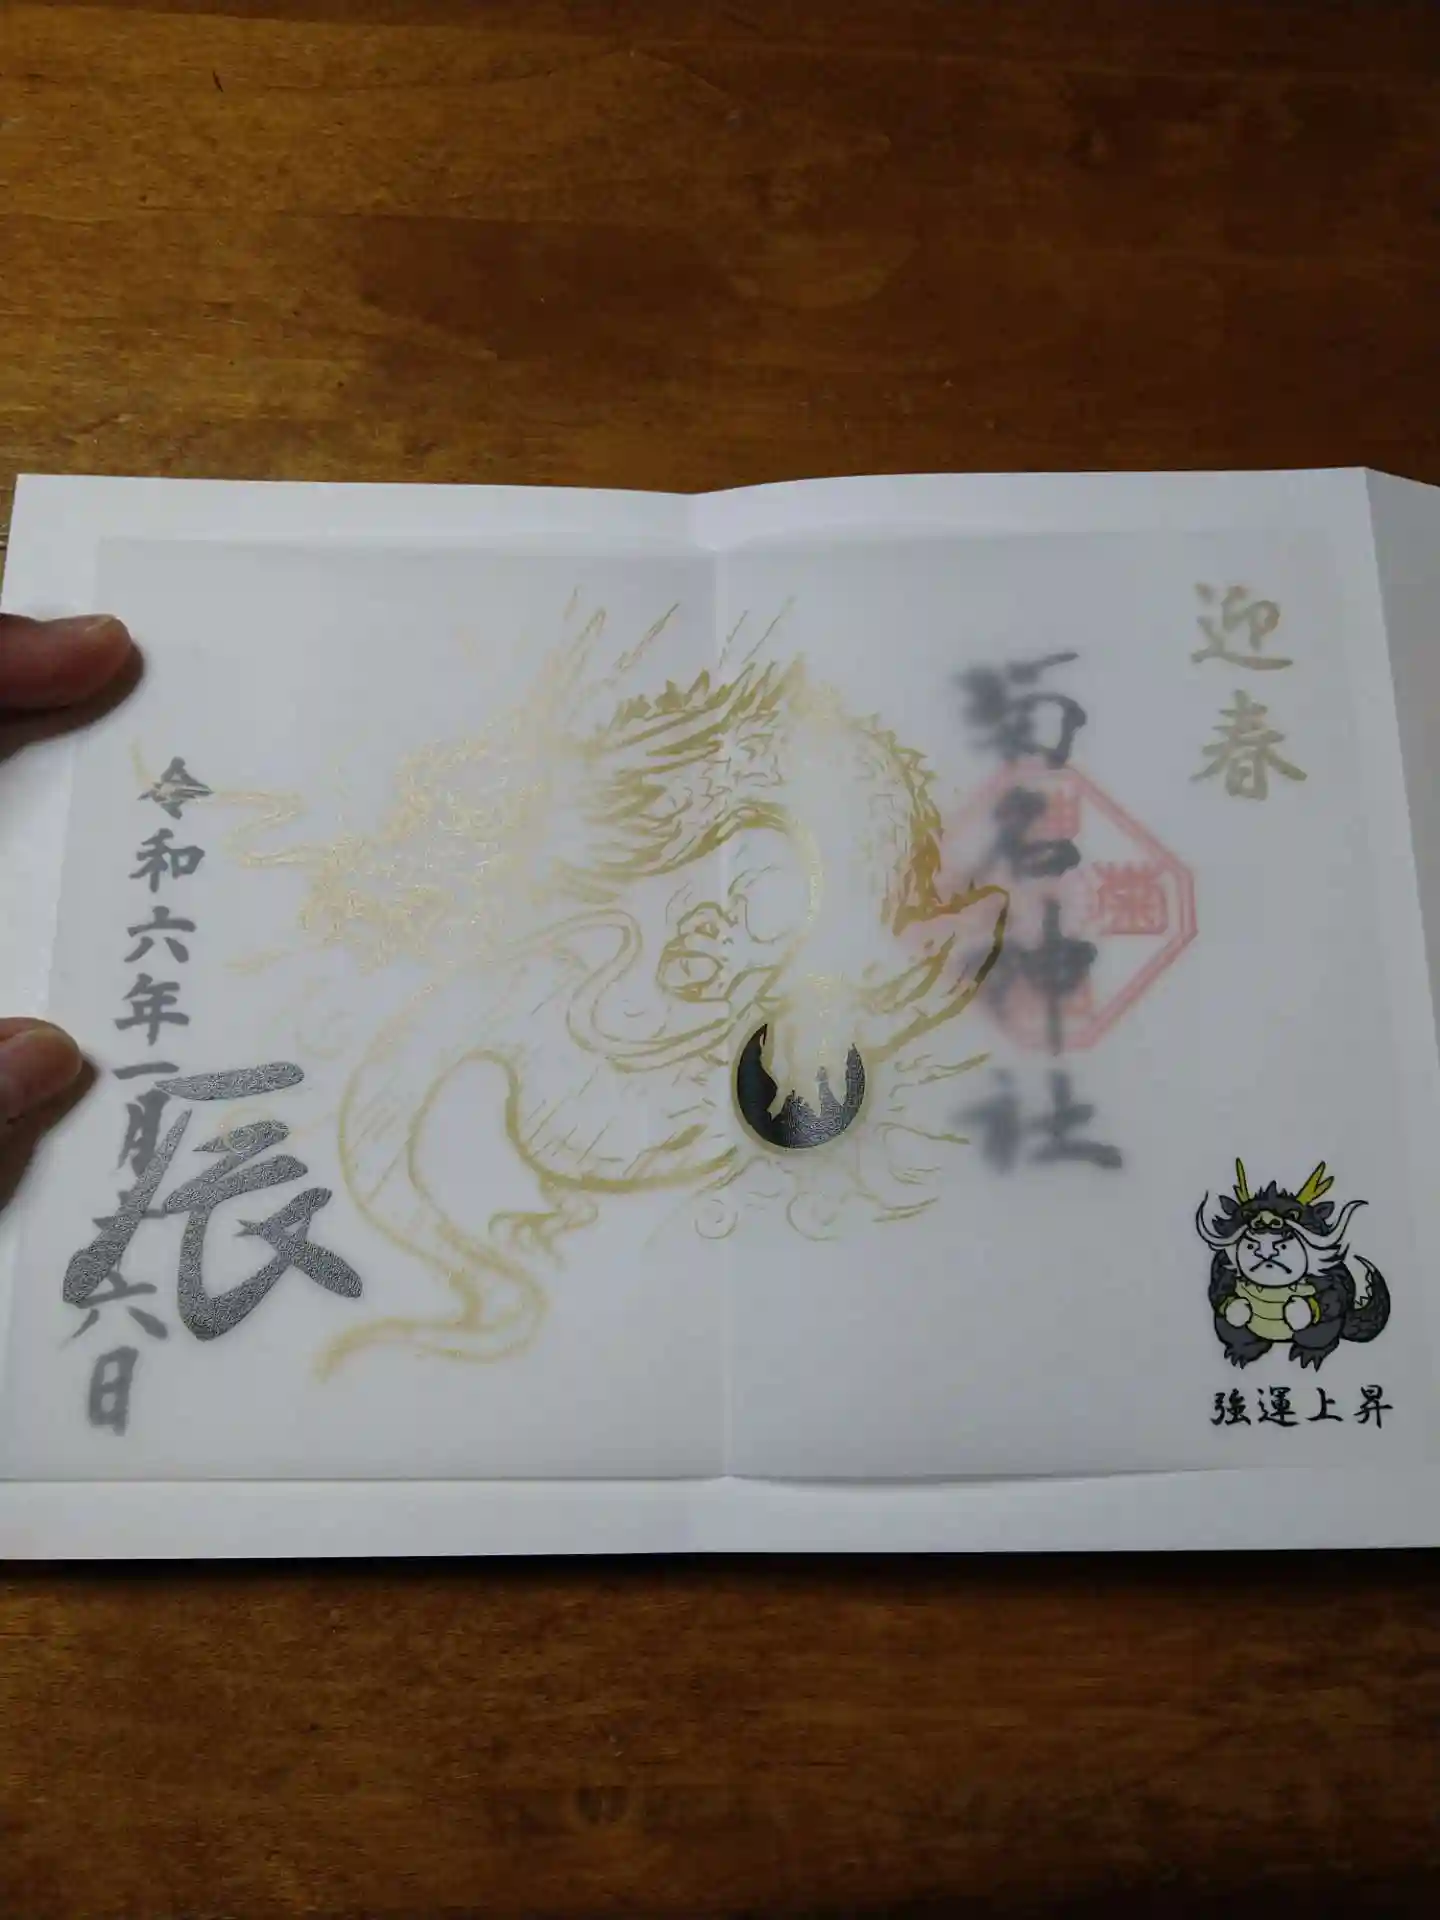 迎春
菊名神社
強運上昇
辰
令和六年一月十六日